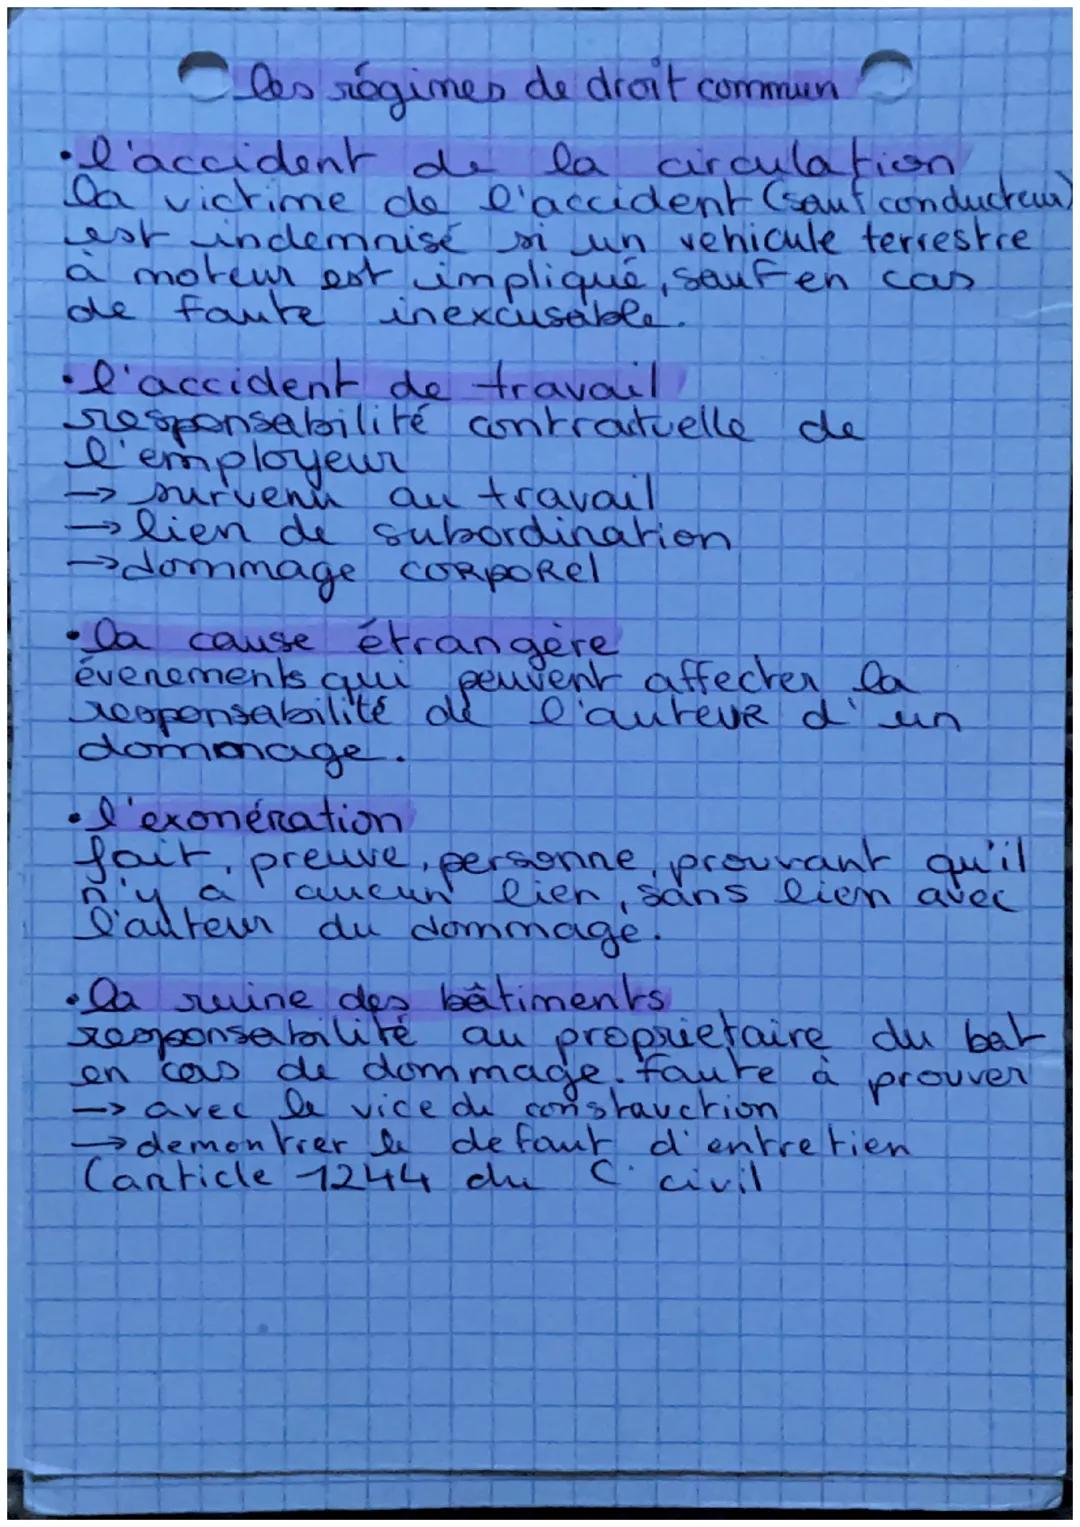 les régimes de droit commun
• l'accident de la circulation
la victime de l'accident (sauf conducteur)
est indemnisé si un vehicule terrestre
à moteur est impliqué, sauf en cas
de faute inexcusable.
• l'accident de travail
responsabilité contractuelle de
l'employeur
→ survenu au travail
→ lien de subordination
→ dommage CORPOREl
• la cause étrangère
évenements qui peuvent affecter la
responsabilité de l'auteur d'un
dommage.
• l'exonération
fait, preuve, personne, prouvant qu'il
n'y a aucun lien, sans lien avec
l'auteur du dommage.
• la ruine des bâtiments
responsabilité au proprietaire du bat
en cas de dommage. faute à prouver
→ avec le vice de construction
→ demontrer le defaut d'entretien
(article 1244 du C. civil